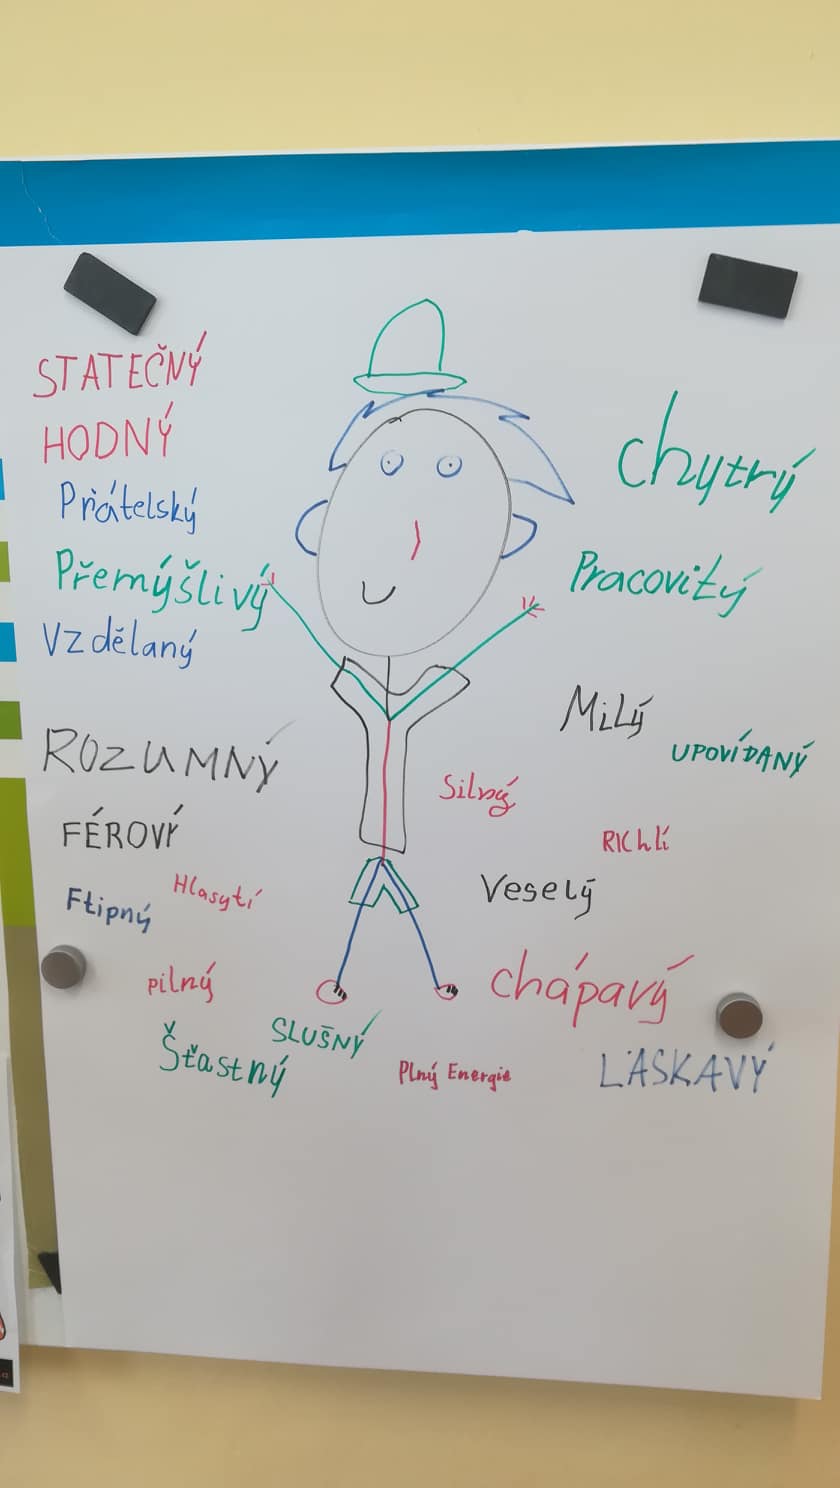 STATEČNÝ
HODNÝ
Přátelský
Přemýšlivý
Vzdělaný
ROZUMNÝ
FÉROVÝ
Ftipný
Hlasytí
pilný
SLUŠNÝ
Šťastný
chytrý
Pracovitý
MiLý
UPOVÍDANÝ
Silný
RIChlí
Veselý
chápavý
Plný Energie
LÁSKAVÝ